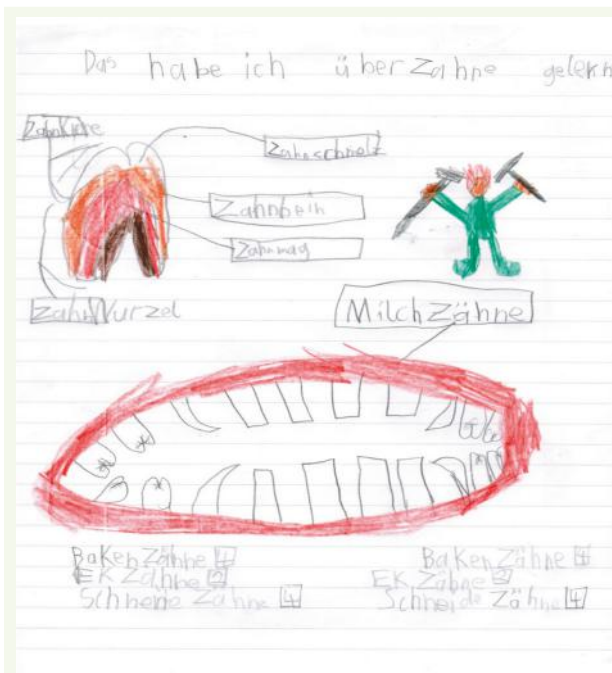 Das habe ich über Zähne gelern
Zahnkrone
Zahnschmelz
Zahnbein
Zahnmag
ZahnWurzel
MilchZähne
BakenZähne 4
EK Zähne 2
Schneide Zähne 4
BakenZähne 4
EK Zähne 2
Schneide Zähne 4